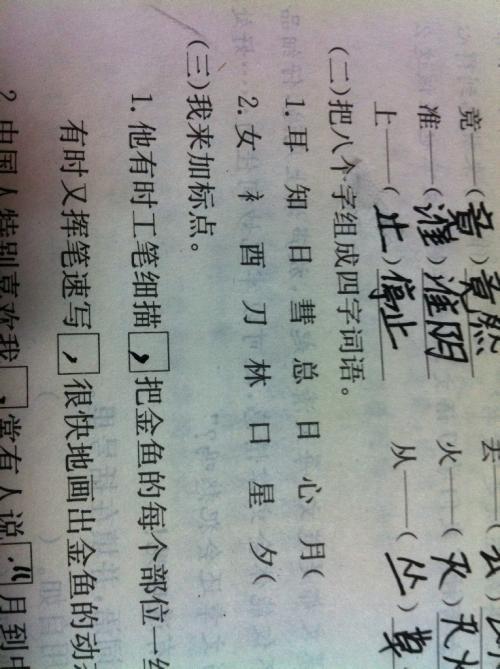 竞——(竟)竟然 丢——(去
准——(淮)淮阴 火——(灭)灭火
上——(止)停止 从——(丛)草
(二)把八个字组成四字词语。
1. 耳 知 日 彗 总 日 心 月(
2. 女 礻 酉 刀 林 口 星 夕(
(三)我来加标点。
1. 他有时工笔细描,把金鱼的每个部位一丝
有时又挥笔速写,很快地画出金鱼的动
2. 中国人特别喜欢我,常有人说:“月到中